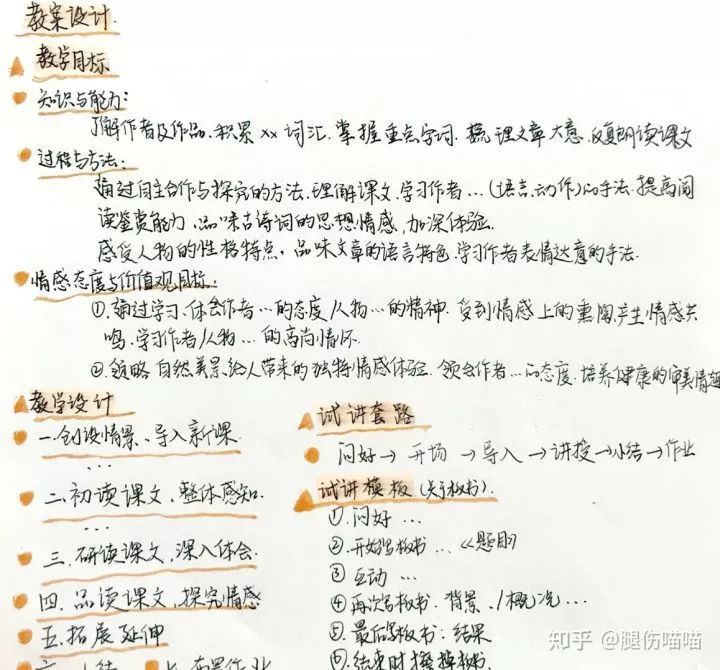 教案设计
教学目标
知识与能力:
了解作者及作品.积累xx词汇.掌握重点字词.梳理文章大意.反复朗读课文
过程与方法:
通过自主合作与探究的方法.理解课文.学习作者…(语言.动作)的手法.提高阅
读鉴赏能力.品味古诗词的思想情感.加深体验.
感受人物的性格特点.品味文章的语言特色.学习作者表情达意的手法.
情感态度与价值观目标:
①.通过学习.体会作者…的态度/人物…的精神.受到情感上的熏陶.产生情感共
鸣.学习作者/人物…的高尚情怀.
②.领略自然美景给人带来的独特情感体验.领会作者…的态度.培养健康的审美情趣
教学设计
一.创设情景、导入新课.
...
二.初读课文、整体感知.
...
三.研读课文,深入体会.
四.品读课文、探究情感
五.拓展延伸
六.小结
七.布置作业
试讲套路
问好→开场→导入→讲授→小结→作业
试讲模板(关于板书).
①.问好…
②.开始写板书…《题目》
③互动…
④再次写板书.背景./概况…
⑤.最后写板书:结果
⑥.结束时擦掉板书.
知乎 @腿伤喵喵